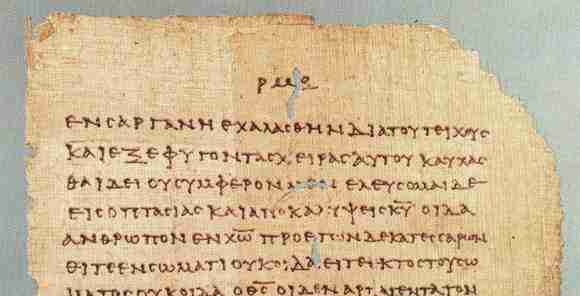 ΕΝϹΑΡΓΑΝΗΕΧΑΛΑϹΘΗΝΔΙΑΤΟΥΤΕΙΧΟΥϹ
ΚΑΙΕΞΕΦΥΓΟΝΤΑϹΧΕΙΡΑϹΑΥΤΟΥΚΑΥΧΑϹ
ΘΑΙΔΕΙΟΥϹΥΜΦΕΡΟΝΜΕΝΕΛΕΥϹΟΜΑΙΔΕ
ΕΙϹΟΠΤΑϹΙΑϹΚΑΙΑΠΟΚΑΛΥΨΕΙϹΚ̅Υ̅ΟΙΔΑ
ΑΝΘΡΩΠΟΝΕΝΧ̅Ω̅ΠΡΟΕΤΩΝΔΕΚΑΤΕϹϹΑΡΩΝ
ΕΙΤΕΕΝϹΩΜΑΤΙΟΥΚΟΙΔΑΕΙΤΕΕΚΤΟϹΤΟΥϹΩ
ΜΑΤΟϹΟΥΚΟΙΔΑΟΘ̅Ϲ̅ΟΙΔΕΝΑΡΠΑΓΕΝΤΑΤΟΝ